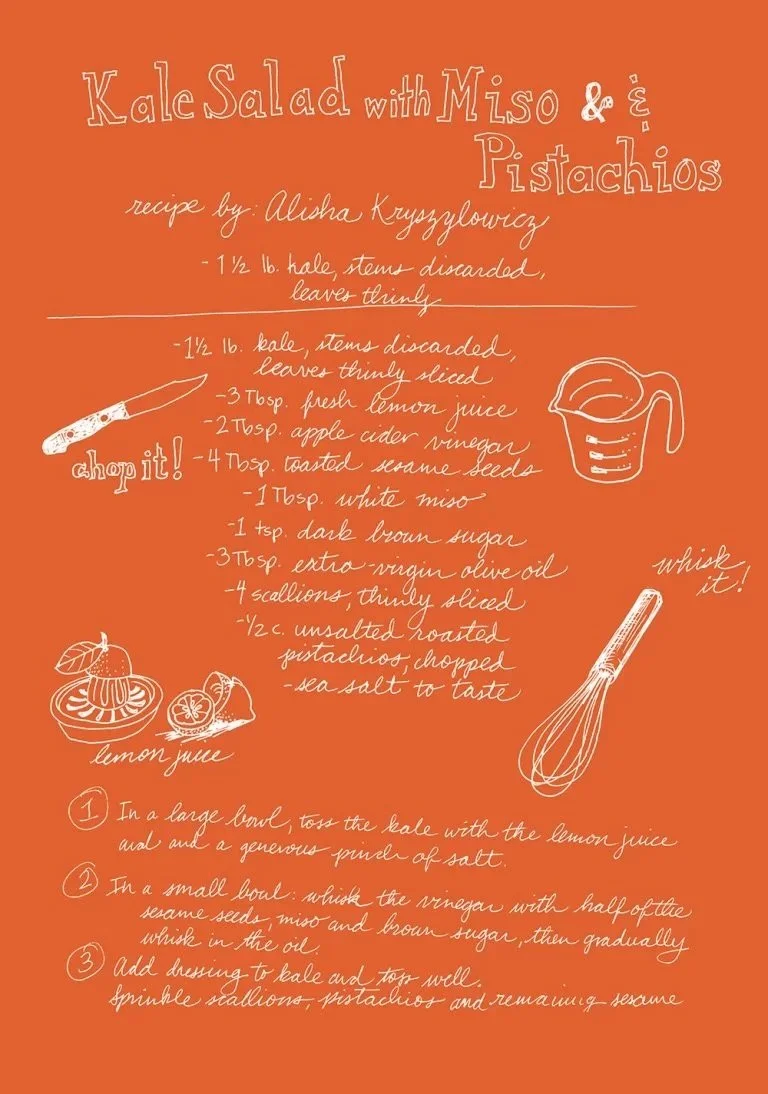 Kale Salad with Miso & &
Pistachios
recipe by: Alisha Kryszylowicz
- 1 1/2 lb. kale, stems discarded,
leaves thinly
- 1 1/2 lb. kale, stems discarded,
leaves thinly sliced
- 3 Tbsp. fresh lemon juice
- 2 Tbsp. apple cider vinegar
- 4 Tbsp. toasted sesame seeds
- 1 Tbsp. white miso
- 1 tsp. dark brown sugar
- 3 Tbsp. extra-virgin olive oil
- 4 scallions, thinly sliced
- 1/2 c. unsalted roasted
pistachios, chopped
- sea salt to taste
chop it!
whisk
it!
lemon juice
1 In a large bowl, toss the kale with the lemon juice
and and a generous pinch of salt.
2 In a small bowl: whisk the vinegar with half of the
sesame seeds, miso and brown sugar, then gradually
whisk in the oil.
3 Add dressing to kale and top well.
Sprinkle scallions, pistachios and remaining sesame